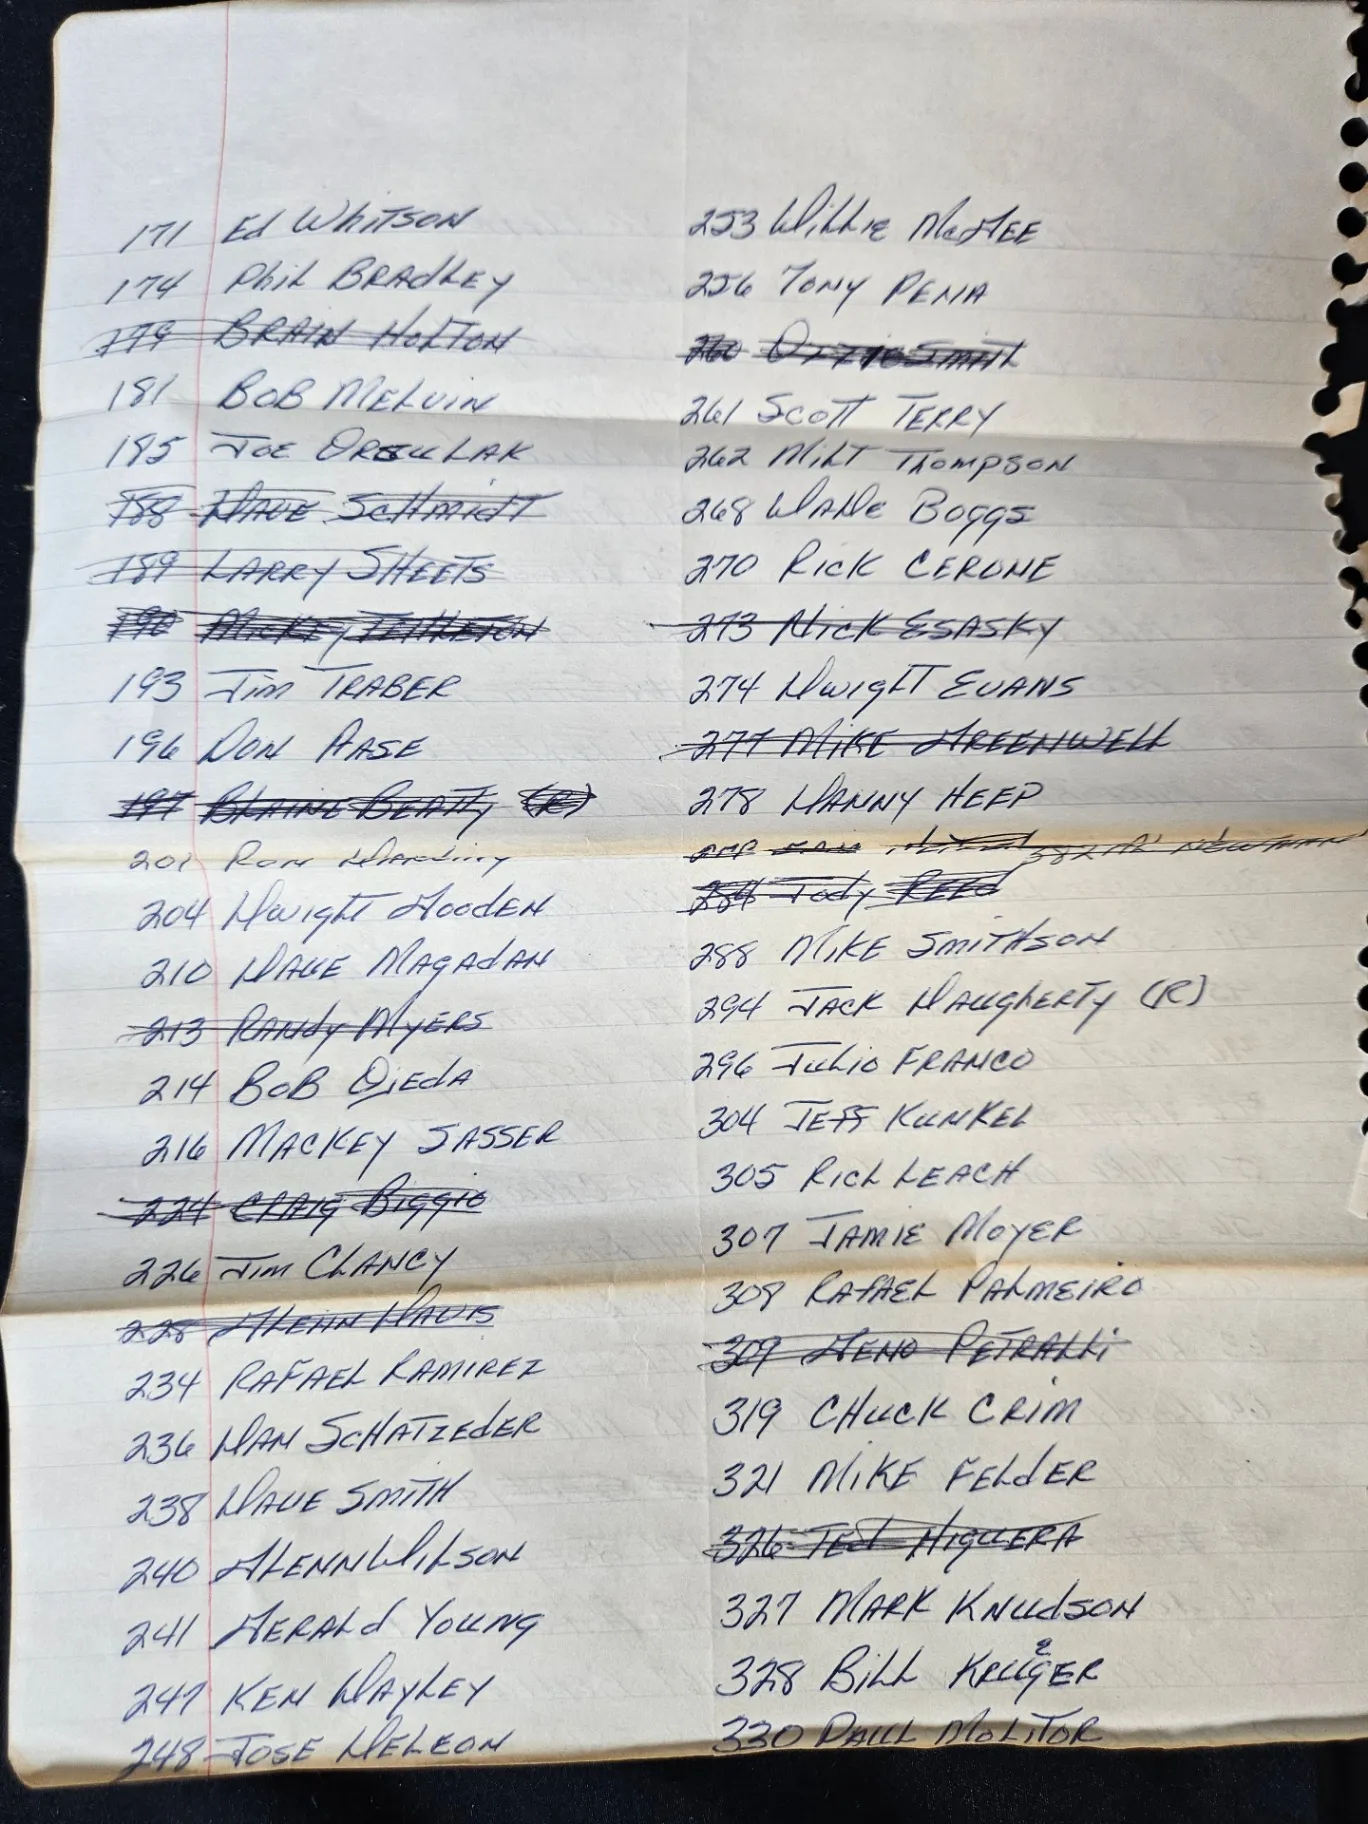 171 Ed Whitson
174 Phil Bradley
179 Brain Holton
181 Bob Melvin
185 Joe Orsulak
188 Dave Schmidt
189 Larry Sheets
190 Mickey Tettleton
193 Jim Traber
196 Don Aase
197 Blaine Beatty (R)
201 Ron Darling
204 Dwight Gooden
210 Dave Magadan
213 Randy Myers
214 Bob Ojeda
216 Mackey Sasser
224 Craig Biggio
226 Jim Clancy
228 Glenn Davis
234 Rafael Ramirez
236 Dan Schatzeder
238 Dave Smith
240 Glenn Wilson
241 Gerald Young
247 Ken Dayley
248 Jose DeLeon
253 Willie McGee
256 Tony Pena
260 Ozzie Smith
261 Scott Terry
262 Milt Thompson
268 Wade Boggs
270 Rick Cerone
273 Nick Esasky
274 Dwight Evans
277 Mike Greenwell
278 Danny Heep
382 Al Newman
284 Jody Reed
288 Mike Smithson
294 Jack Daugherty (R)
296 Julio Franco
304 Jeff Kunkel
305 Rick Leach
307 Jamie Moyer
308 Rafael Palmeiro
309 Geno Petralli
319 Chuck Crim
321 Mike Felder
326 Ted Higuera
327 Mark Knudson
328 Bill Krueger
330 Paul Molitor